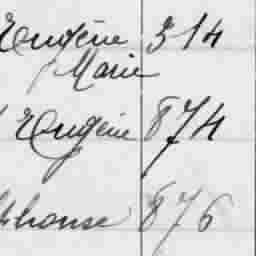 Eugène 314
Marie
Eugène 874
phonse 876